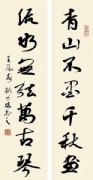 青山不墨千秋画
流水無弦萬古琴